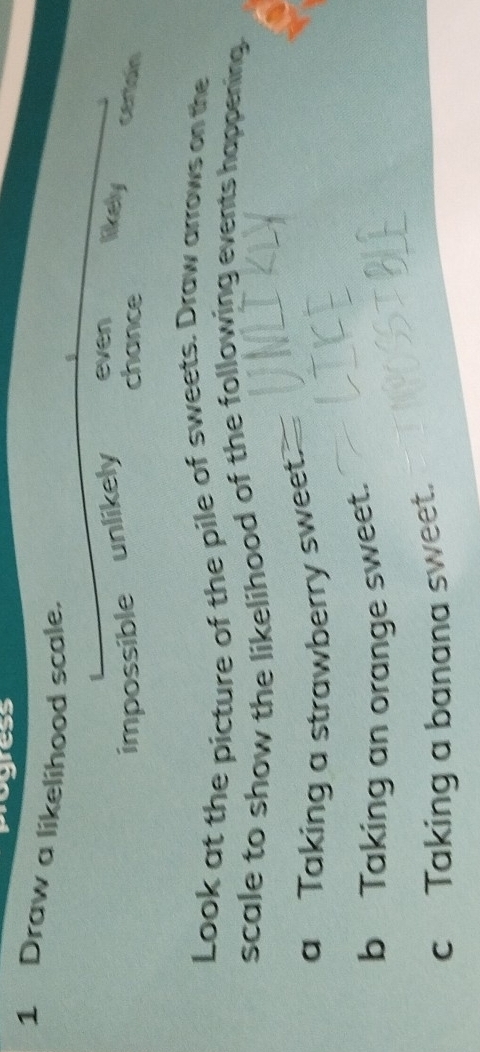 progress
1 Draw a likelihood scale.
impossible unlikely even chance likely certain
Look at the picture of the pile of sweets. Draw arrows on the
scale to show the likelihood of the following events happening.
a Taking a strawberry sweet. = UNLIKLY
b Taking an orange sweet. = LIKE
c Taking a banana sweet. = IMPOSSIBLE